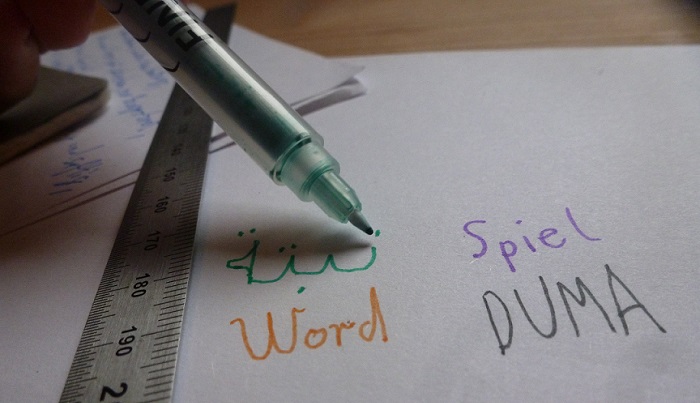 150
160
170
180
190
نبتة
Word
Spiel
DUMA